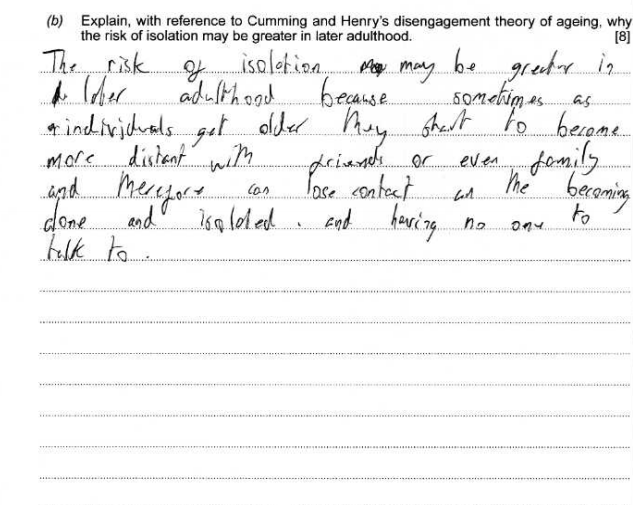 (b) Explain, with reference to Cumming and Henry's disengagement theory of ageing, why
the risk of isolation may be greater in later adulthood. [8]
The risk of isolation may be greater in
later adulthood because sometimes as
individuals get older they start to become
more distant with friends or even family
and therefore can lose contact and the becoming
alone and isolated. and having no one to
talk to.